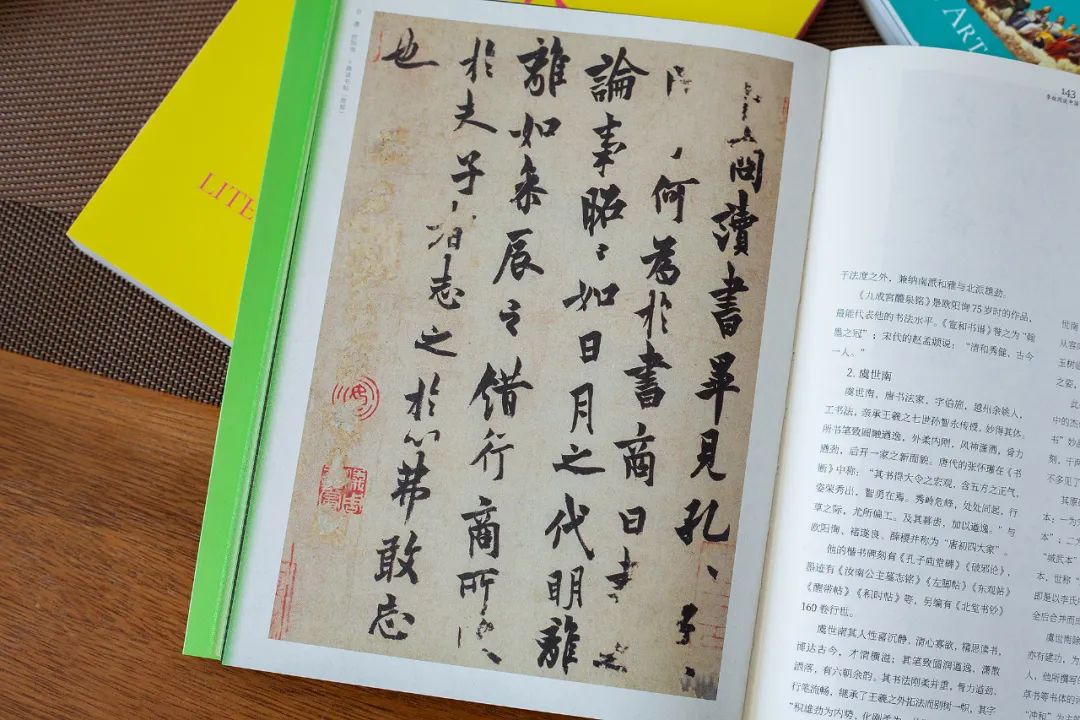 問讀書畢見孔〻子〻
何為於書商曰書之
論事昭〻如日月之代明離
離如叅辰之錯行商所
於夫子者志之於心弗敢忘
也
LITE
ART
143
于法度之外,兼纳南派和雅与北派雄劲。
《九成宫醴泉铭》是欧阳询75岁时的作品,
最能代表他的书法水平。《宣和书谱》誉之为“翰
墨之冠”;宋代的赵孟頫说:“清和秀健,古今
一人。”
2. 虞世南
虞世南,唐书法家,字伯施,越州余姚人,
工书法,亲承王羲之七世孙智永传授,妙得其体。
所书笔致圆融遒逸,外柔内刚,风神潇洒,骨力
遒劲,后开一家之新面貌。唐代的张怀瓘在《书
断》中称:“其书得大令之宏观,含五方之正气,
姿荣秀出,智勇在焉。秀岭危峰,处处间起,行
草之际,尤所偏工。及其暮齿,加以遒逸。”与
欧阳询、褚遂良、薛稷并称为“唐初四大家”。
他的楷书碑刻有《孔子庙堂碑》《破邪论》,
墨迹有《汝南公主墓志铭》《左脚帖》《东观帖》
《醒带帖》《积时帖》等,另编有《北堂书钞》
160 卷行世。
虞世南其人性喜沉静,清心寡欲,精思读书,
博达古今,才情横溢;其笔致圆润遒逸,潇散
洒落,有六朝余韵。其书法刚柔并重,骨力遒劲,
行笔流畅,继承了王羲之外拓法而别树一帜,其字